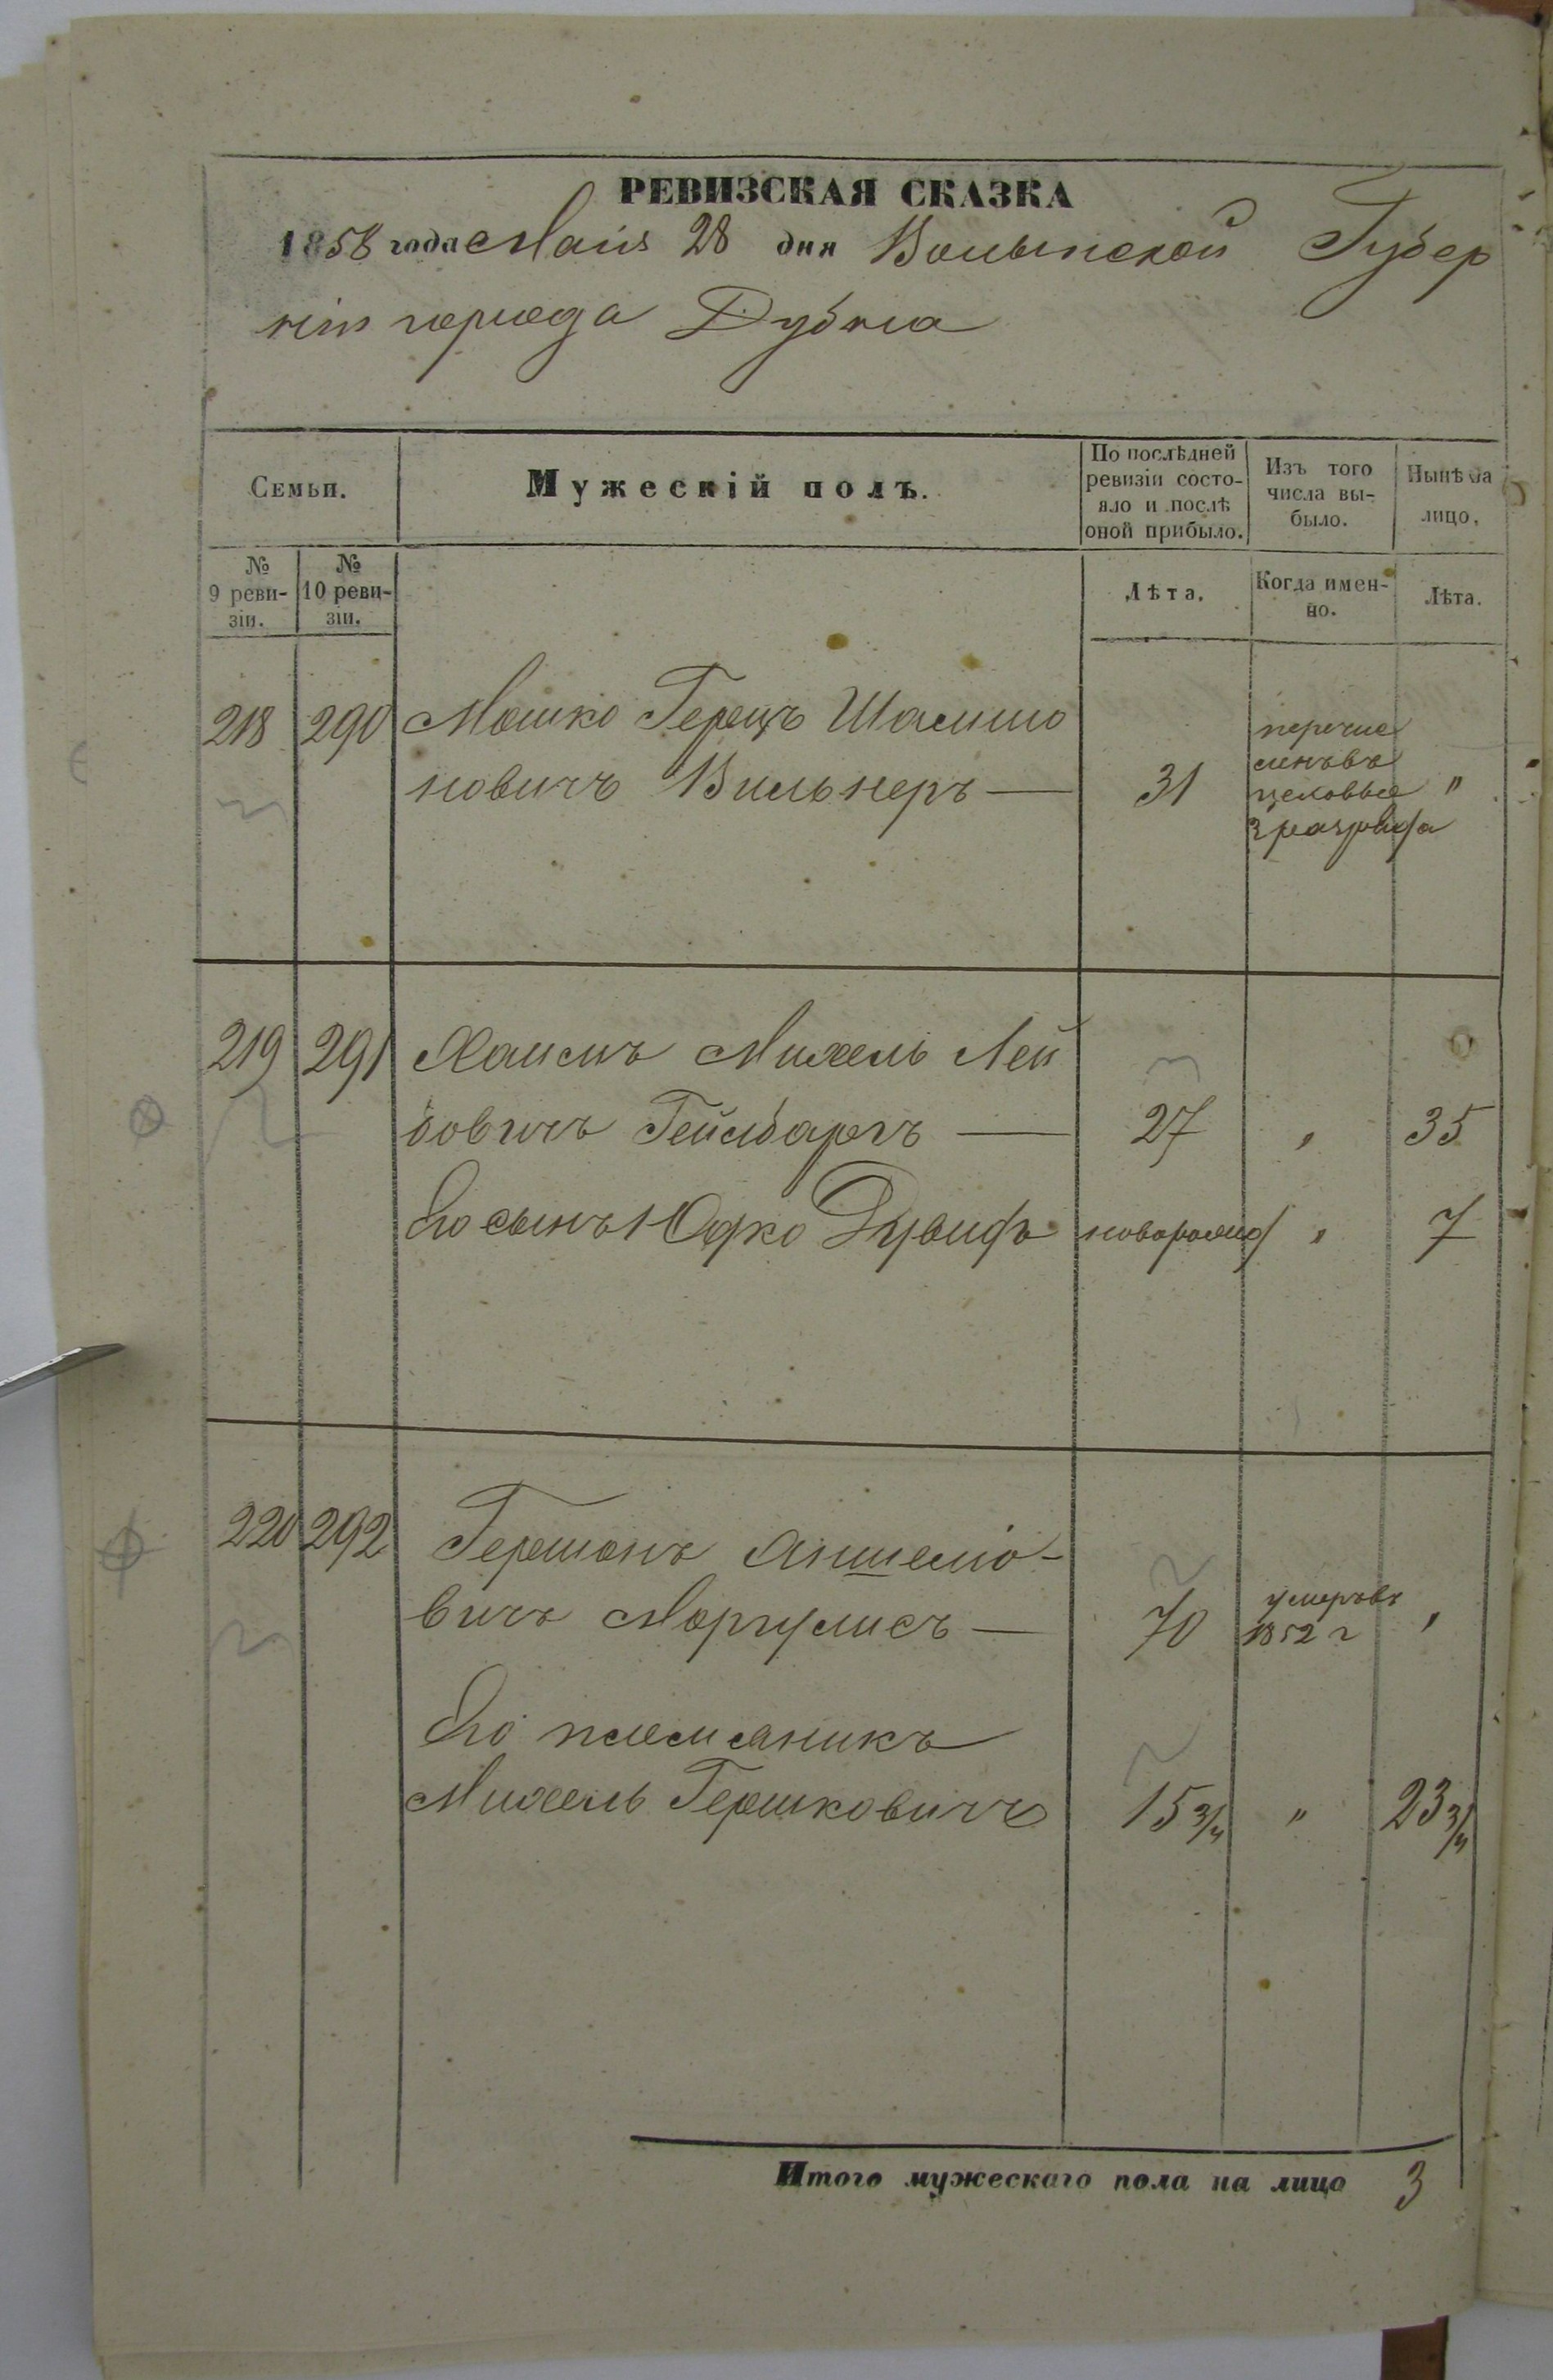 РЕВИЗСКАЯ СКАЗКА
1858 года Маія 28 дня Волынской Губер
ніи города Дубна
Семьи.
Мужескій полъ.
По послѣдней
ревизіи состо-
яло и послѣ
оной прибыло.
Изъ того
числа вы-
было.
Нынѣ на
лицо.
№
9 реви-
зіи.
№
10 реви-
зіи.
Лѣта.
Когда имен-
но.
Лѣта.
218 290 Мошко Герецъ Шлиомо
новичъ Вильнеръ — 31 "
перечис
ленъ въ
цеховые
3 разряда
219 291 Хаимъ Михель Лей
бовичъ Геймбаргъ — 27 " 35
Его сынъ Юдко Дувидъ новорожд " 7
220 292 Гершонъ Аншеліо-
вичъ Маргулисъ — 70 умеръ въ "
1852 г
Его племяникъ
Михель Гершковичъ 15 3/4 " 23 3/4
Итого мужескаго пола на лицо 3